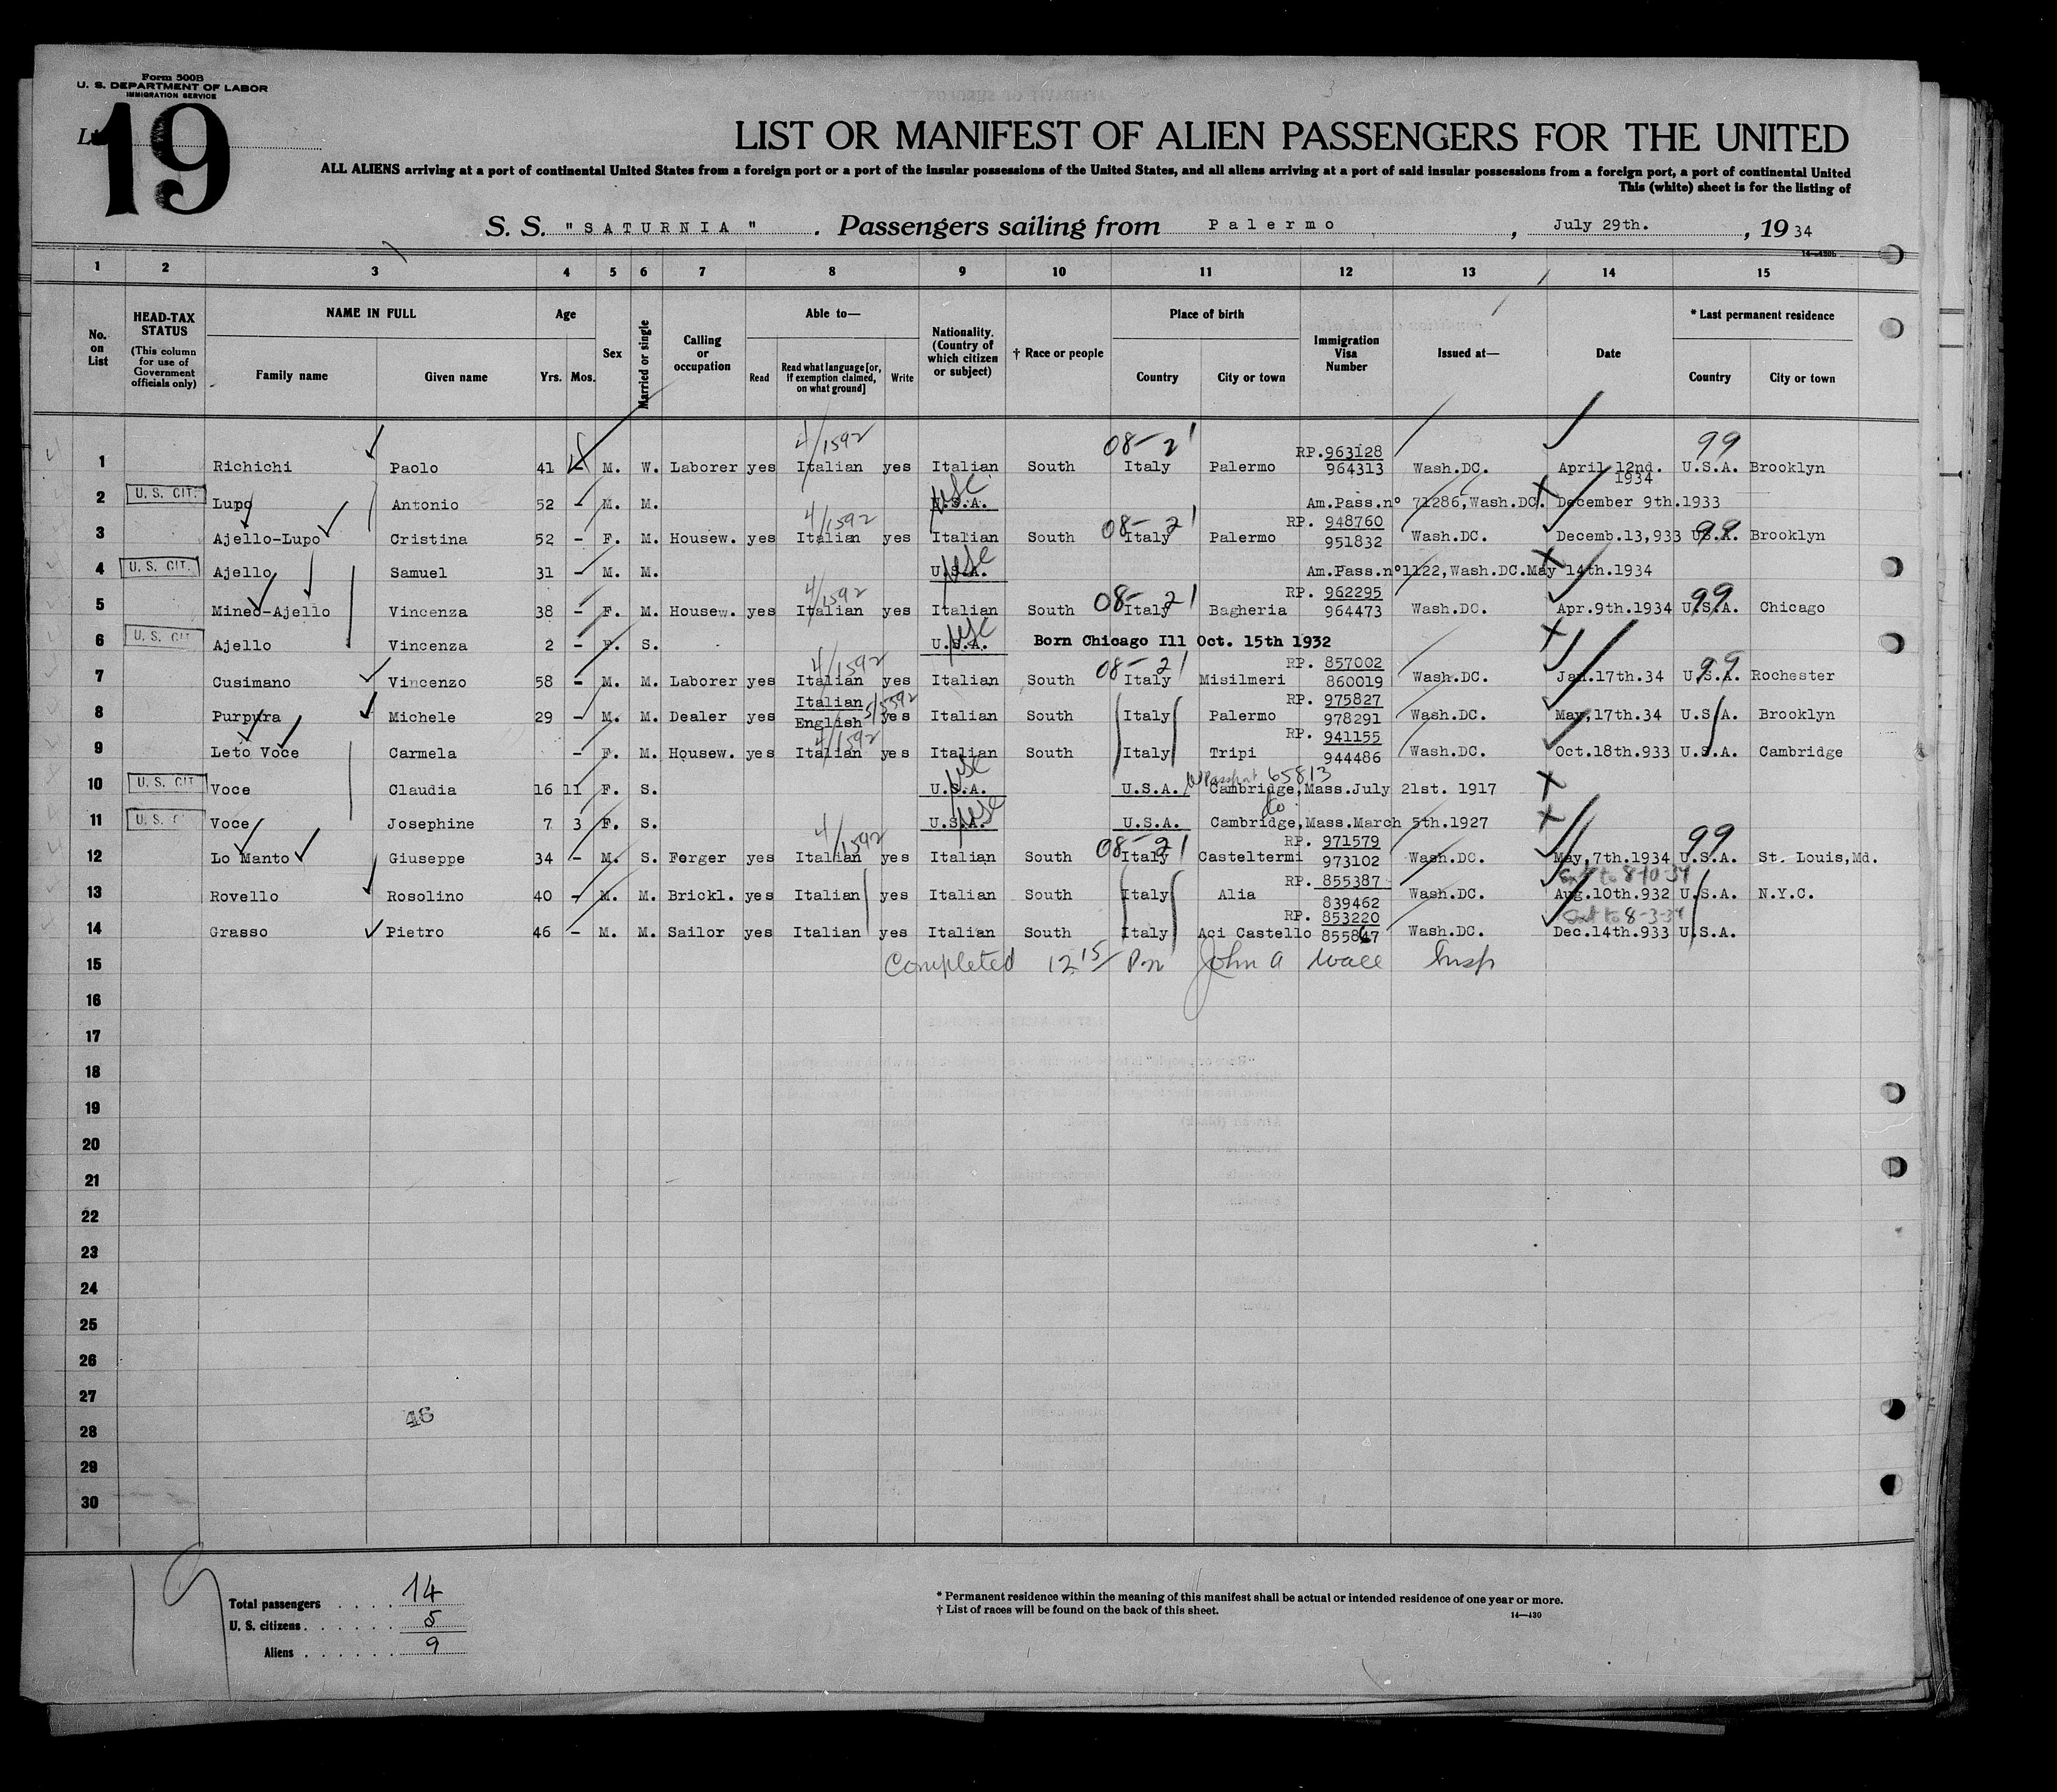 Form 500B
U. S. DEPARTMENT OF LABOR
IMMIGRATION SERVICE
19
LIST OR MANIFEST OF ALIEN PASSENGERS FOR THE UNITED
ALL ALIENS arriving at a port of continental United States from a foreign port or a port of the insular possessions of the United States, and all aliens arriving at a port of said insular possessions from a foreign port, a port of continental United
This (white) sheet is for the listing of
S. S. "SATURNIA". Passengers sailing from Palermo, July 29th., 1934
14—430b
1 2 3 4 5 6 7 8 9 10 11 12 13 14 15
No. on List
HEAD-TAX STATUS (This column for use of Government officials only)
NAME IN FULL Family name Given name
Age Yrs. Mos.
Sex
Married or single
Calling or occupation
Able to— Read Read what language [or, if exemption claimed, on what ground] Write
Nationality. (Country of which citizen or subject)
† Race or people
Place of birth Country City or town
Immigration Visa Number
Issued at—
Date
* Last permanent residence Country City or town
4/1592 08-21 RP.963128 99
1 Richichi Paolo 41 - M. W. Laborer yes Italian yes Italian South Italy Palermo 964313 Wash.DC. April 12nd. 1934 U.S.A. Brooklyn
2 U. S. CIT. Lupo Antonio 52 - M. M. U.S.A. USC Am.Pass.nº 71286,Wash.DC. December 9th.1933
4/1592 08-21 RP. 948760 99
3 Ajello-Lupo Cristina 52 - F. M. Housew. yes Italian yes Italian South Italy Palermo 951832 Wash.DC. Decemb.13,933 U.S.A. Brooklyn
4 U. S. CIT. Ajello Samuel 31 - M. M. U.S.A. USC Am.Pass.nº1122,Wash.DC.May 14th.1934
4/1592 08-21 RP. 962295 99
5 Mineo-Ajello Vincenza 38 - F. M. Housew. yes Italian yes Italian South Italy Bagheria 964473 Wash.DC. Apr.9th.1934 U.S.A. Chicago
6 U. S. CIT Ajello Vincenza 2 - F. S. U.S.A. USC Born Chicago Ill Oct. 15th 1932
4/1592 08-21 RP. 857002 99
7 Cusimano Vincenzo 58 - M. M. Laborer yes Italian yes Italian South Italy Misilmeri 860019 Wash.DC. Jan.17th.34 U.S.A. Rochester
Italian 5/5592 RP. 975827
8 Purpura Michele 29 - M. M. Dealer yes English yes Italian South Italy Palermo 978291 Wash.DC. May,17th.34 U.S.A. Brooklyn
4/1592 RP. 941155
9 Leto Voce Carmela - F. M. Housew. yes Italian yes Italian South Italy Tripi 944486 Wash.DC. Oct.18th.933 U.S.A. Cambridge
Passport 65813
10 U. S. CIT Voce Claudia 16 11 F. S. U.S.A. USC U.S.A. Cambridge,Mass.July 21st. 1917
11 U. S. C Voce Josephine 7 3 F. S. U.S.A. USC U.S.A. Cambridge,Mass.March 5th.1927
4/1592 08-21 RP. 971579 99
12 Lo Manto Giuseppe 34 - M. S. Forger yes Italian yes Italian South Italy Casteltermi 973102 Wash.DC. May,7th.1934 U.S.A. St. Louis,Md.
RP. 855387 to 8-10-34
13 Rovello Rosolino 40 - M. M. Brickl. yes Italian yes Italian South Italy Alia 839462 Wash.DC. Aug.10th.932 U.S.A. N.Y.C.
RP. 853220 to 8-3-34
14 Grasso Pietro 46 - M. M. Sailor yes Italian yes Italian South Italy Aci Castello 855847 Wash.DC. Dec.14th.933 U.S.A.
15 Completed 12 15/ Pm John A Wace Insp
16
17
18
19
20
21
22
23
24
25
26
27
46
28
29
30
19
Total passengers 14
U. S. citizens 5
Aliens 9
* Permanent residence within the meaning of this manifest shall be actual or intended residence of one year or more.
† List of races will be found on the back of this sheet.
14—430